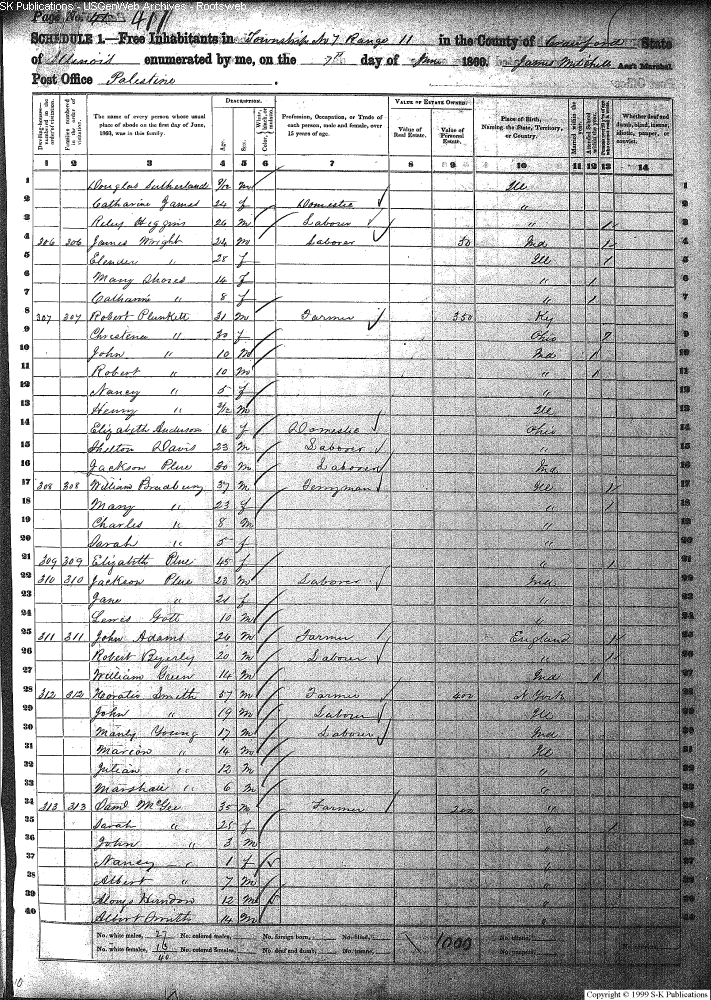 SK Publications - USGenWeb Archives - Rootsweb
Page No. 411
SCHEDULE 1.—Free Inhabitants in Township No 7 Range 11 in the County of Crawford State
of Illinois enumerated by me, on the 7th day of June 1860. James Mitchell Ass't Marshal
Post Office Palestine.
DESCRIPTION. VALUE OF ESTATE OWNED.
Dwelling-houses—numbered in the order of visitation. Families numbered in the order of visitation. The name of every person whose usual place of abode on the first day of June, 1860, was in this family. Age. Sex. Color, White, black, or mulatto. Profession, Occupation, or Trade of each person, male and female, over 15 years of age. Value of Real Estate. Value of Personal Estate. Place of Birth, Naming the State, Territory, or Country. Married within the year. Attended School within the year. Whether deaf and dumb, blind, insane, idiotic, pauper, or convict.
1 2 3 4 5 6 7 8 9 10 11 12 13 14
1 Douglas Sutherland 9/12 m Ill 1
2 Catharine James 24 f Domestic " 2
3 Riley Higgins 26 m Labourer " 1 3
4 206 206 James Wright 24 m Laborer 50 Ind 1 4
5 Elender " 28 f Ill 1 5
6 Mary Shores 14 f " 1 6
7 Catharin " 8 f " 1 7
8 307 307 Robert Plunkett 31 m Farmer 350 Ky 8
9 Christena " 30 f Ohio 9
10 John " 10 m Ind 1 10
11 Robert " 10 m " 1 11
12 Nancy " 5 f " 12
13 Henry " 2/12 m Ill 13
14 Elizabeth Anderson 16 f Domestic Ohio 14
15 Shelton Davis 23 m Laborer " 15
16 Jackson Plue 20 m Laborer Ind 16
17 308 308 William Bradbury 37 m Ferryman Ill 1 17
18 Mary " 23 f " 1 18
19 Charles " 8 m " 19
20 Sarah " 5 f " 20
21 309 309 Elizabeth Plue 45 f " 1 21
22 310 310 Jackson Plue 23 m Laborer Ind 22
23 Jane " 21 f " 23
24 Lewis Gott 10 m " 24
25 311 311 John Adams 26 m Farmer England 1 25
26 Robert Byerly 20 m Labourer " 1 26
27 William Green 14 m Ind 1 27
28 312 312 Horatio Smith 57 m Farmer 400 N York 28
29 John " 19 m Labourer Ill 29
30 Manly Young 17 m Labourer Ind 30
31 Marion " 14 m Ill 31
32 Julian " 12 m " 32
33 Marshall " 6 m " 33
34 313 313 David McGee 35 m Farmer 200 " 34
35 Sarah " 25 f " 1 35
36 John " 3 m " 36
37 Nancy " 1 f " 37
38 Albert " 7 m " 38
39 Alonzo Herndon 12 m " 39
40 Albert 14 m " 40
No. white males, 27 No. colored males, No. foreign born, No. blind, 1000 No. idiotic,
No. white females, 13 No. colored females, No. deaf and dumb, No. insane, No. paupers,
40
Copyright © 1999 S-K Publications